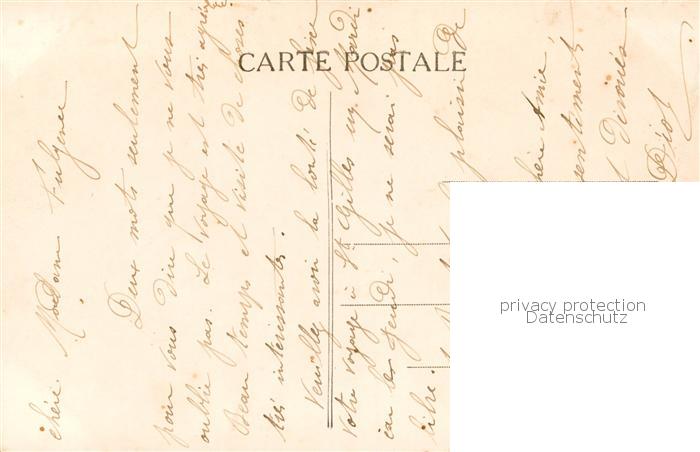 CARTE POSTALE
chère Madame Fulgence
Deux mots seulement
pour vous dire que je ne vous
oublie pas. Le voyage est très agréa
Beau temps et visite de choses
très intéressantes.
Veuillez avoir la bonté de faire
votre voyage à St Gilles Mardi
car les jeudi, je ne serai pas
libre. plaisir de
chère Amie,
sentiments
dévoués
privacy protection
Datenschutz